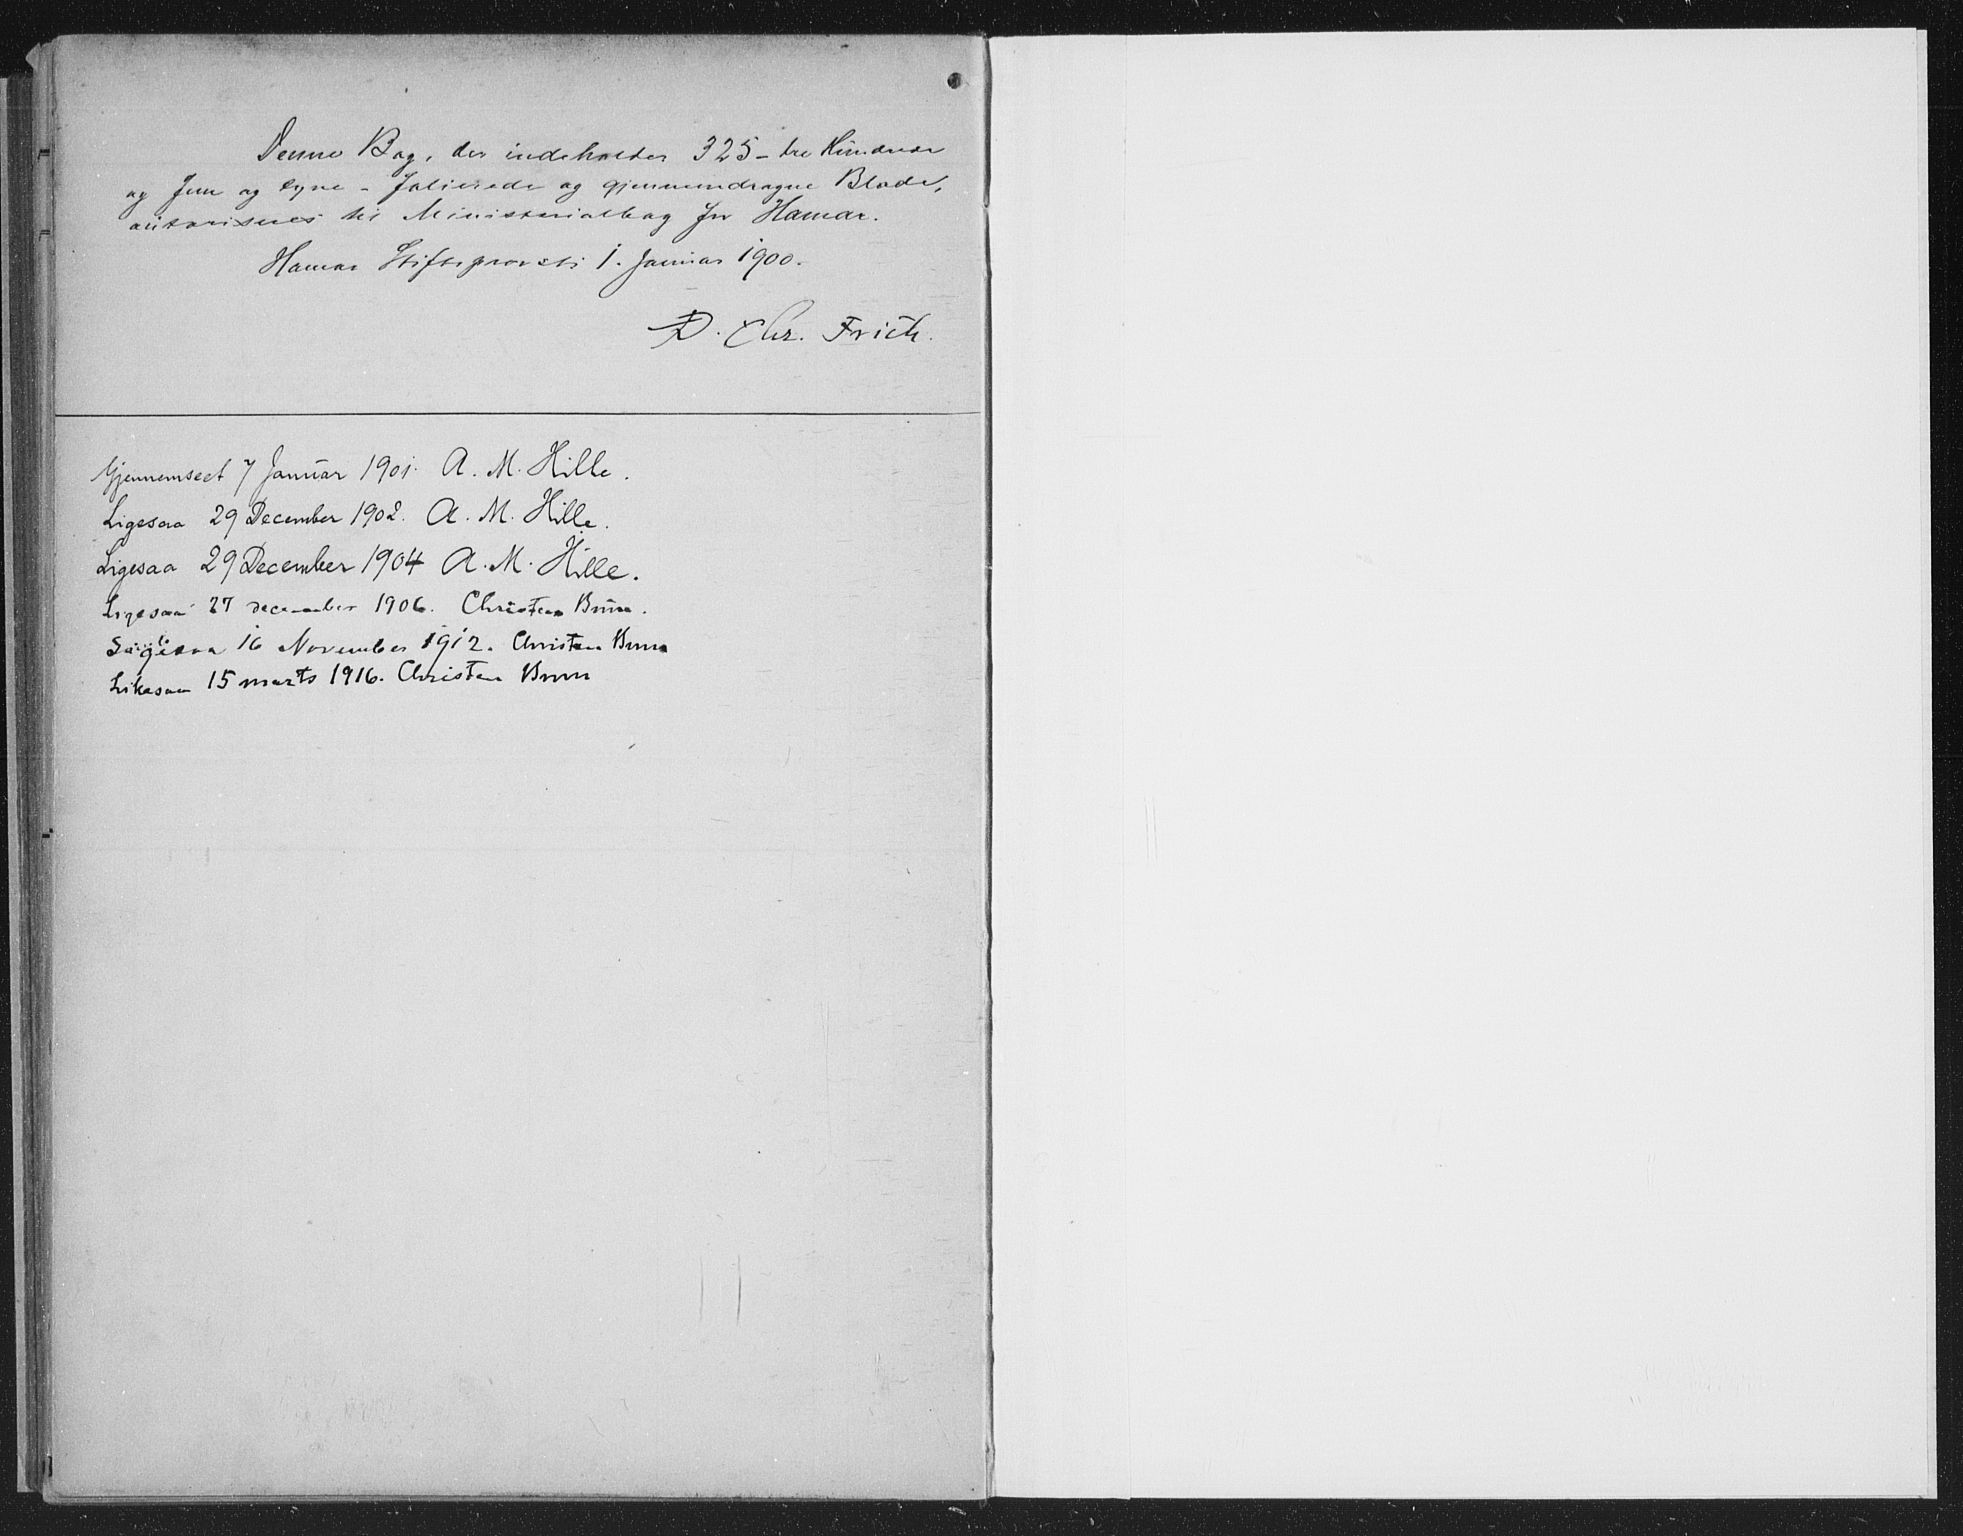 Denne Bog, der indeholder 325 - tre Hundrede
og fem og tyve - folierede og gjennemdragne Blade,
autoriseres til Ministerialbog for Hamar.
Hamar Stiftsprovsti 1. Januar 1900.
D. Chr. Frich.
Gjennemseet 7 Januar 1901. A. M. Hille.
Ligesaa 29 December 1902. A. M. Hille.
Ligesaa 29 December 1904 A. M. Hille.
Ligesaa 27 december 1906. Christen Brun.
16 November 1912. Christen Brun
Likesaa 15 marts 1916. Christen Brun